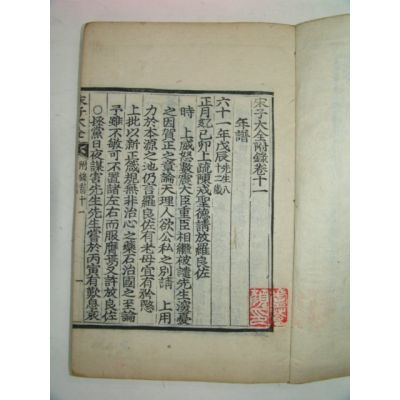 宋子大全附錄卷十一
年譜
六十一年戊辰先生八十二歲
正月己卯上疏陳戒聖德請放羅良佐
時 上威怒數震大臣重臣相繼被譴先生深憂
之因質正之章論天理人欲公私之別請 上用
力於本源之地仍言羅良佐有老母宜有矜愍
上批以新正箴規無非治心之藥石治國之至論
予雖不敏可不置諸左右而服膺焉又許放良佐
○黨日夜謀害先生先生嘗於丙寅有歎息哀
宋子大全 附錄卷十一 一